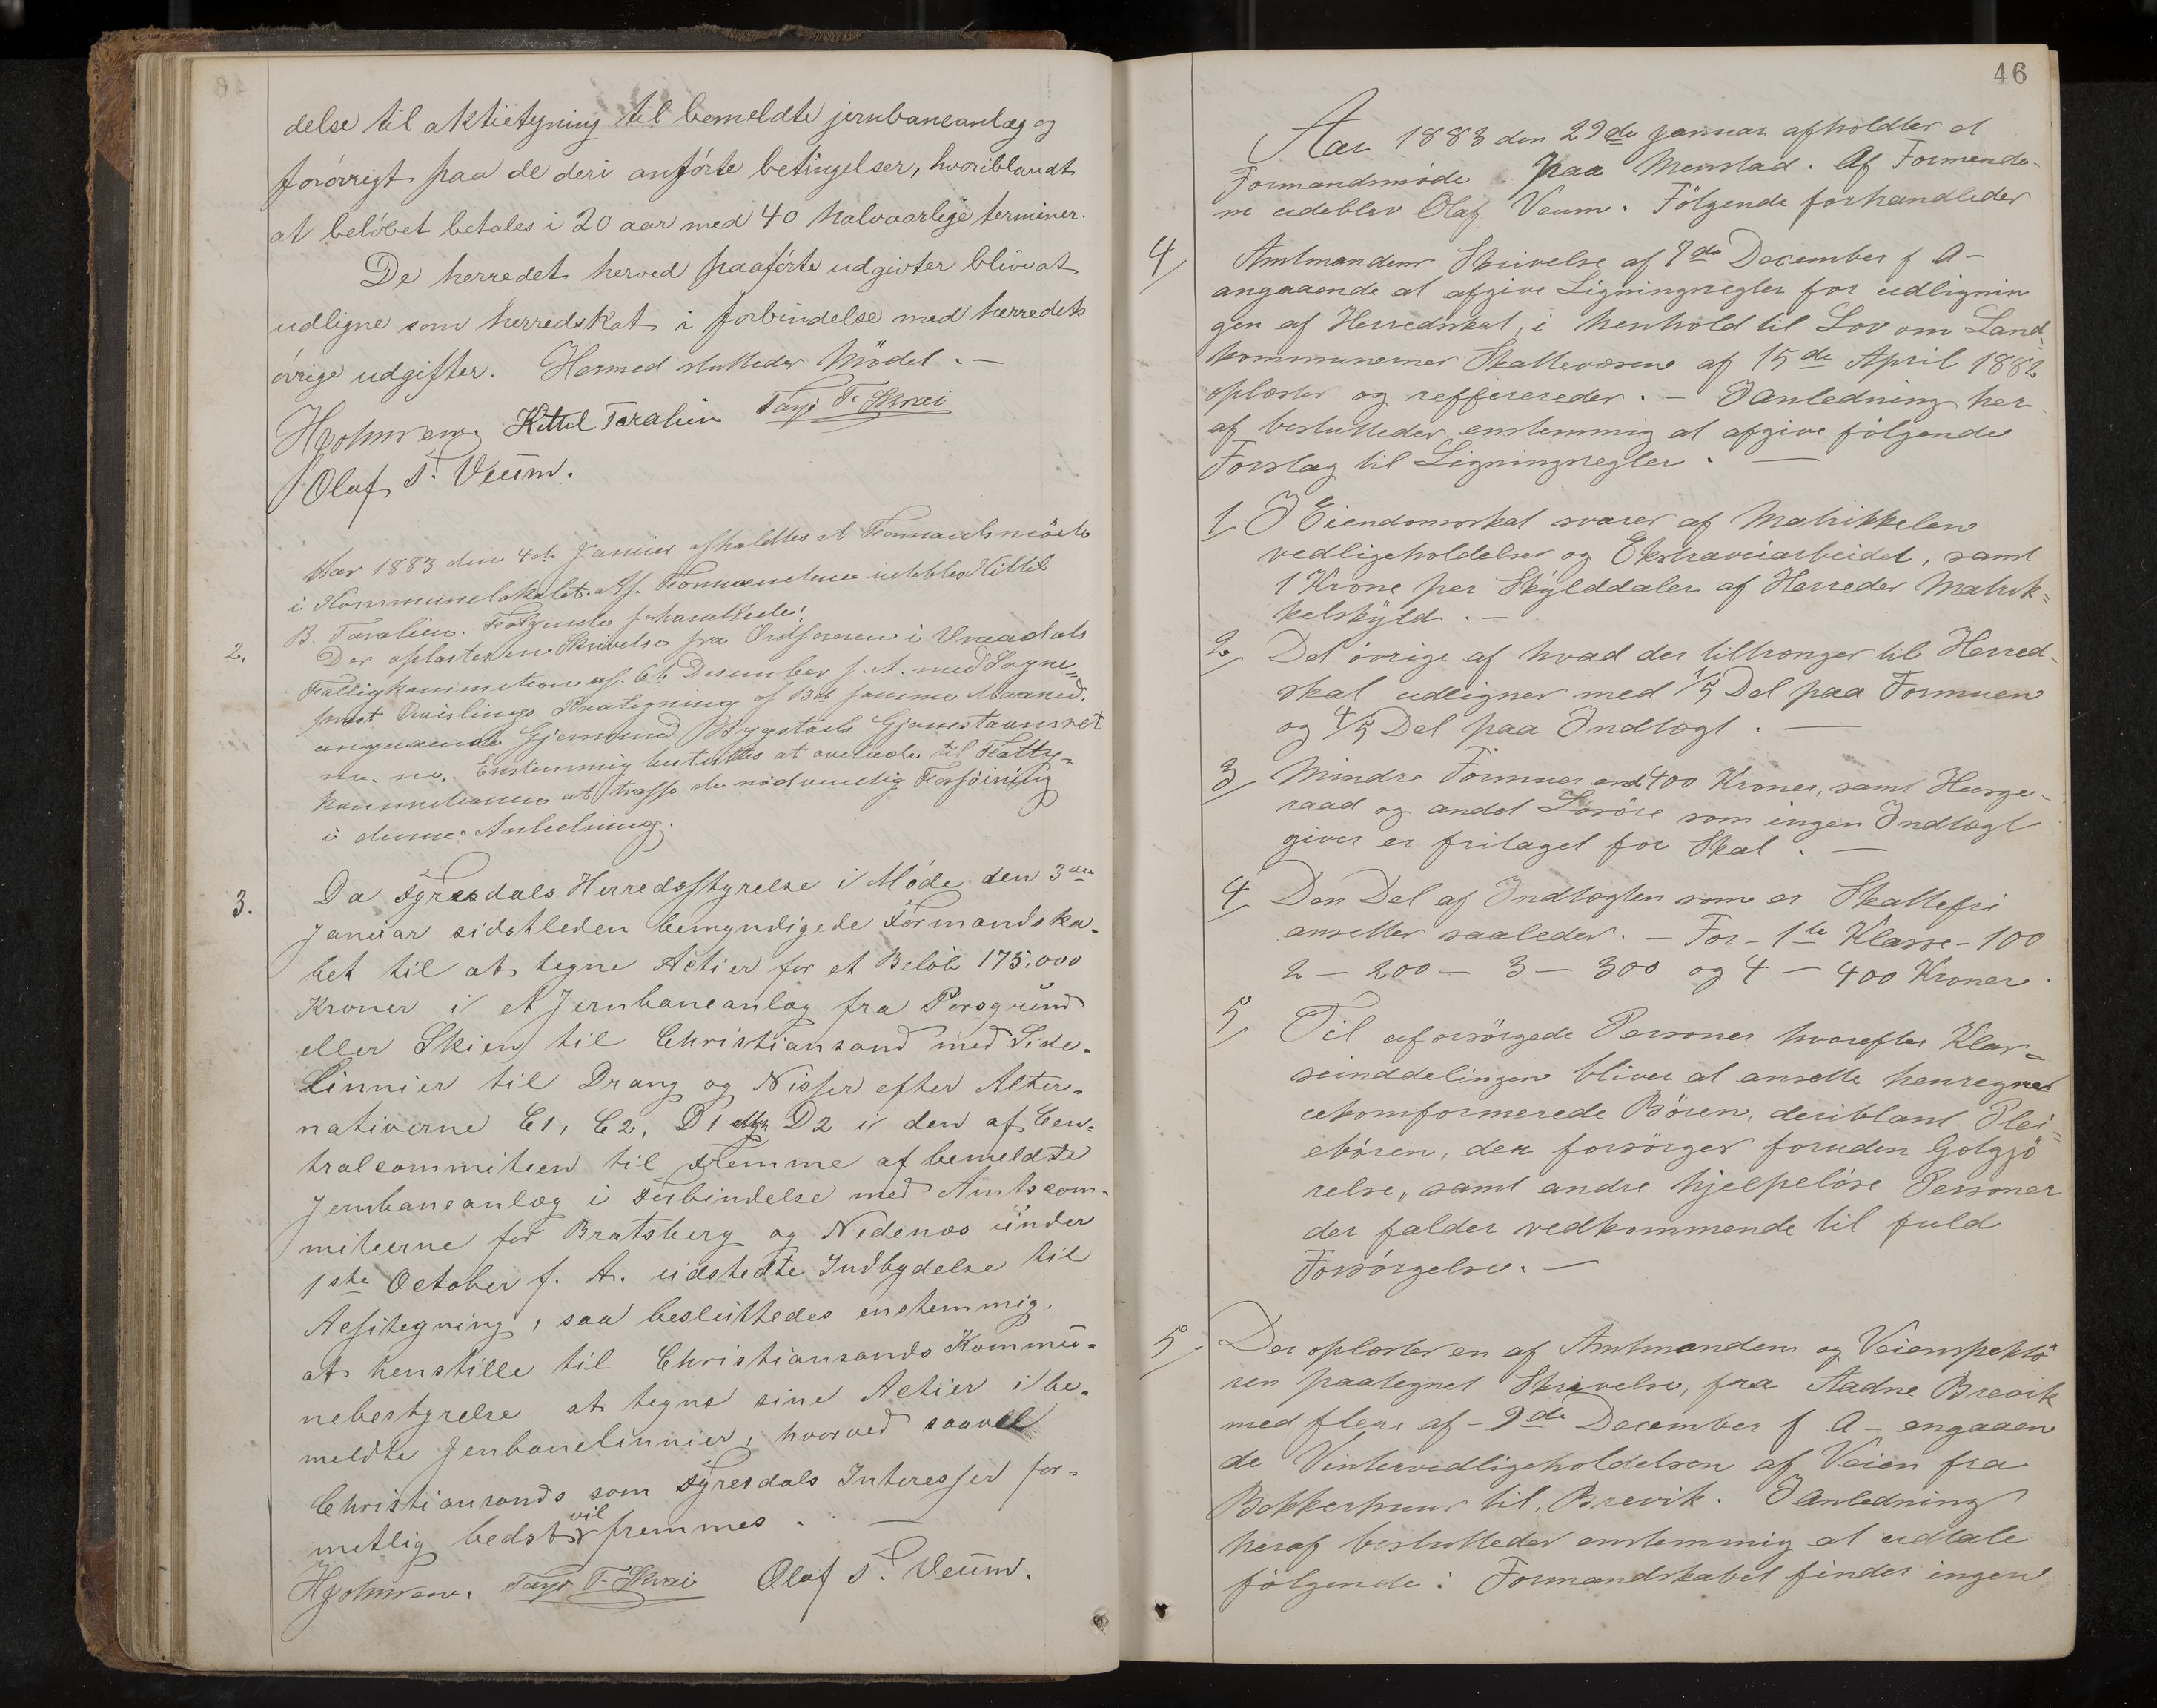 delse til aktietegning til bemeldte jernbaneanlæg og
forøvrigt paa de deri anførte betingelser, hvoriblandt
at beløbet betales i 20 aar med 40 halvaarlige terminer.
De herredet herved paaførte udgivter blive at
udligne som herredskat i forbindelse med herredets
øvrige udgifter. Hermed sluttedes Mødet. —
Kittel Taralein
Olaf T. Veum.
Aar 1883 den 4de Januar afholdtes et Formandsmöde
i Kommunelokalet. Af Formændene udeblev Kittil
B. Taralien. Følgende forhandledes:
2. Der oplæstes en Skrivelse fra Ordføreren i Vraadals
Fattigkommition af 6te Desember f. A. med Sogne-
prest Paategning af samme Maaned.
angaaende
m. m. Enstemmig besluttes at overlade til Fattig-
kommitionen at træffe de nødvendig Forføining
i denne Anledning.
3. Da Fyresdals Herredsstyrelse i Møde den 3die
Januar sidstleden bemyndigede Formandska-
bet til at tegne Actier for et Beløb 175,000
Kroner i et Jernbaneanlæg fra Porsgrund
eller Skien til Christiansand med Side-
Linnier til Drang og Nisser efter Alter-
nativerne C1, C2, D1 eller D2 i den af Cen-
tralcommiteen til Fremme af bemeldte
Jernbaneanlæg i Forbindelse med Amtscom-
miteerne for Bratsberg og Nedenæs under
1ste October f. A. udstedte Indbydelse til
Actitegning, saa besluttedes enstemmig,
at henstille til Christiansands Kommu-
nebestyrelse at tegne sine Actier i be-
meldte Jenbanelinnier, hvorved saavel
Christiansands som Fyresdals Interesser for-
metlig bedst vil fremmes. —
Olaf T. Veum.
46
Aar 1883 den 29de Januar afholdtes et
Formandsmöde paa Menstad. Af Formænde-
ne udeblev Olaf Veum. Fölgende forhandledes
4/ Amtmandens Skrivelse af 7de December f A –
angaaende at afgive Ligningsregler for udlignin
gen af Herredsskat, i henhold til Lov om Land-
kommunernes Skattevæsen af 15de April 1882
oplæstes og reffereredes. – I Anledning her
af besluttedes enstemmig at afgive fölgende
Forslag til Ligningsregler. —
1/ I Eiendomsskat svares af Matrikkelen
vedligeholdelser og Ekstraveiarbeidet, samt
1 Krone per Skylddaler af Herredes Matrik=
kelskyld. –
2/ Det övrige af hvad der tiltrænges til Herred-
skat udlignes med 1/5 Del paa Formuen
og 4/5 Del paa Indtægt. —
3/ Mindre Formuer end 400 Kroner, samt Husge-
raad og andet Lösöre som ingen Indtægt
giver er fritaget for Skat. —
4/ Den Del af Indtægten som er Skattefri
ansættes saaledes. – For – 1te Klasse – 100
2 – 200 – 3 – 300 og 4 – 400 Kroner.
5/ Til uforsörgede Personer hvorefter Klas-
seinddelingen bliver at ansætte henregnes
ukomformerede Bören, deriblant Plei=
ebören, der forsörges foruden Golgjö
relse, samt andre hjelpelöse Personer
der falder vedkommende til fuld
Forsörgelse. —
5/. Der oplæstes en af Amtmanden og Veiinspektö
ren paategnet Skrivelse, fra Aadne Brevik
med flere af – 9de December f A – angaaen
de Vintervedligeholdelsen af Veien fra
til Brevik. I Anledning
heraf besluttedes enstemmig at udtale
fölgende: Formandskabet finder ingen